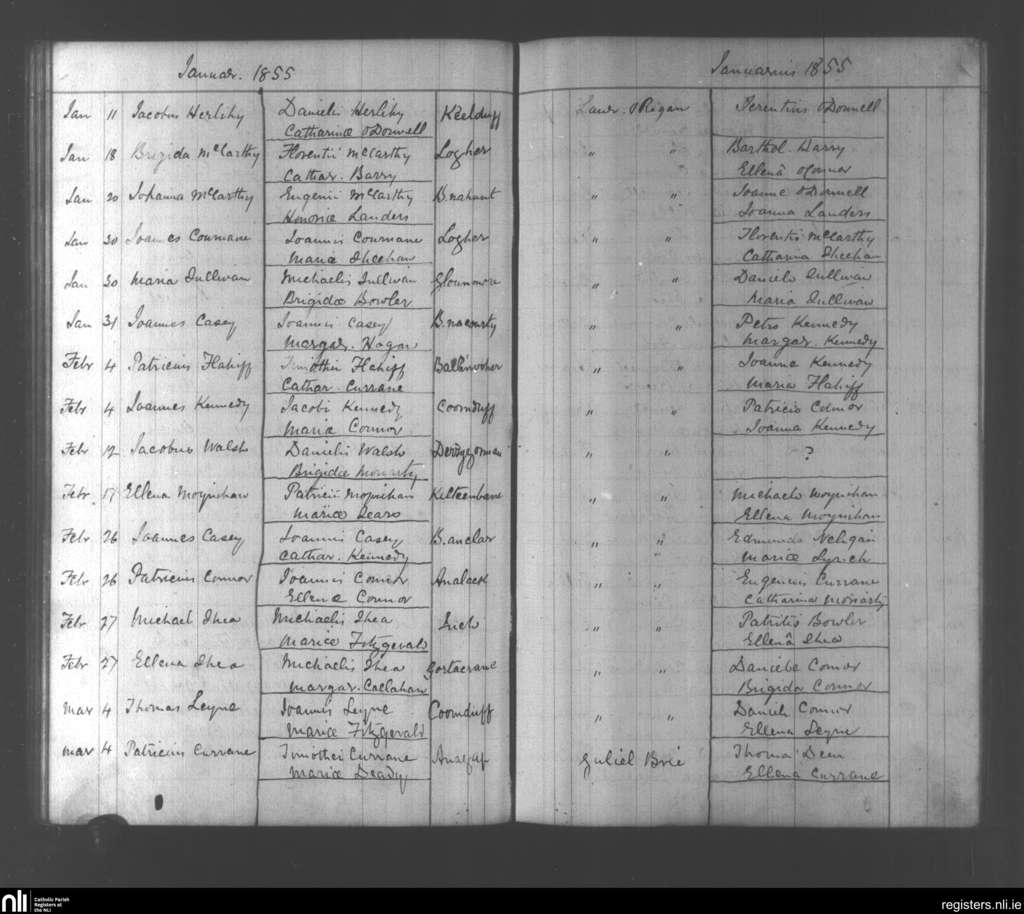 Januar. 1855
Januarius 1855
Jan 11 Jacobus Herlihy Danielis Herlihy Keelduff Laur. O'Rigan Terentius O'Donnell
Catharinæ O'Donnell
Jan 18 Brigida McCarthy Florentii McCarthy Logher " " Barthol. Barry
Cathar. Barry Ellenâ O'Connor
Jan 20 Johanna McCarthy Eugenii McCarthy B.nahunt " " Joanne O'Donnell
Honoriæ Landers Joanna Landers
Jan 30 Joannes Cournane Joannis Cournane Logher " " Florentis McCarthy
Maria Sheehan Catharina Sheehan
Jan 30 Maria Sullivan Michaelis Sullivan Glounmore " " Daniele Sullivan
Brigidæ Bowler Maria Sullivan
Jan 31 Joannes Casey Joannis Casey B.nacourty " " Petro Kennedy
Margar. Hogan Margar. Kennedy
Febr 4 Patricius Flahiff Timothei Flahiff " " Joanne Kennedy
Cathar. Currane Maria Flahiff
Febr 4 Joannes Kennedy Jacobi Kennedy Coomduff " " Patricio Connor
Maria Connor Joanna Kennedy
Febr 12 Jacobus Walsh Danielis Walsh Derrygorman " " ?
Brigidæ Moriarty
Febr 17 Ellena Moynihan Patricii Moynihan Kilteenbane " " Michaele Moynihan
Mariæ Sears Ellena Moynihan
Febr 26 Joannes Casey Joannis Casey B.anclar " " Edmundo Neligan
Cathar. Kennedy Mariæ Lynch
Febr 26 Patricius Connor Joannis Connor Analack " " Eugenius Currane
Ellenæ Connor Catharina Moriarty
Febr 27 Michael Shea Michaelis Shea Inch " " Patritis Bowler
Mariæ Fitzgerald Ellenâ Shea
Febr 27 Ellena Shea Michaelis Shea Gortacrane " " Daniele Connor
Margar. Callahan Brigida Connor
Mar 4 Thomas Leyne Joannis Leyne Coomduff " " Daniele Connor
Mariæ Fitzgerald Ellena Leyne
Mar 4 Patricius Currane Timothei Currane Guliel Brie Thoma Deen
Mariæ Deady Ellena Currane
nli Catholic Parish Registers at the NLI
registers.nli.ie